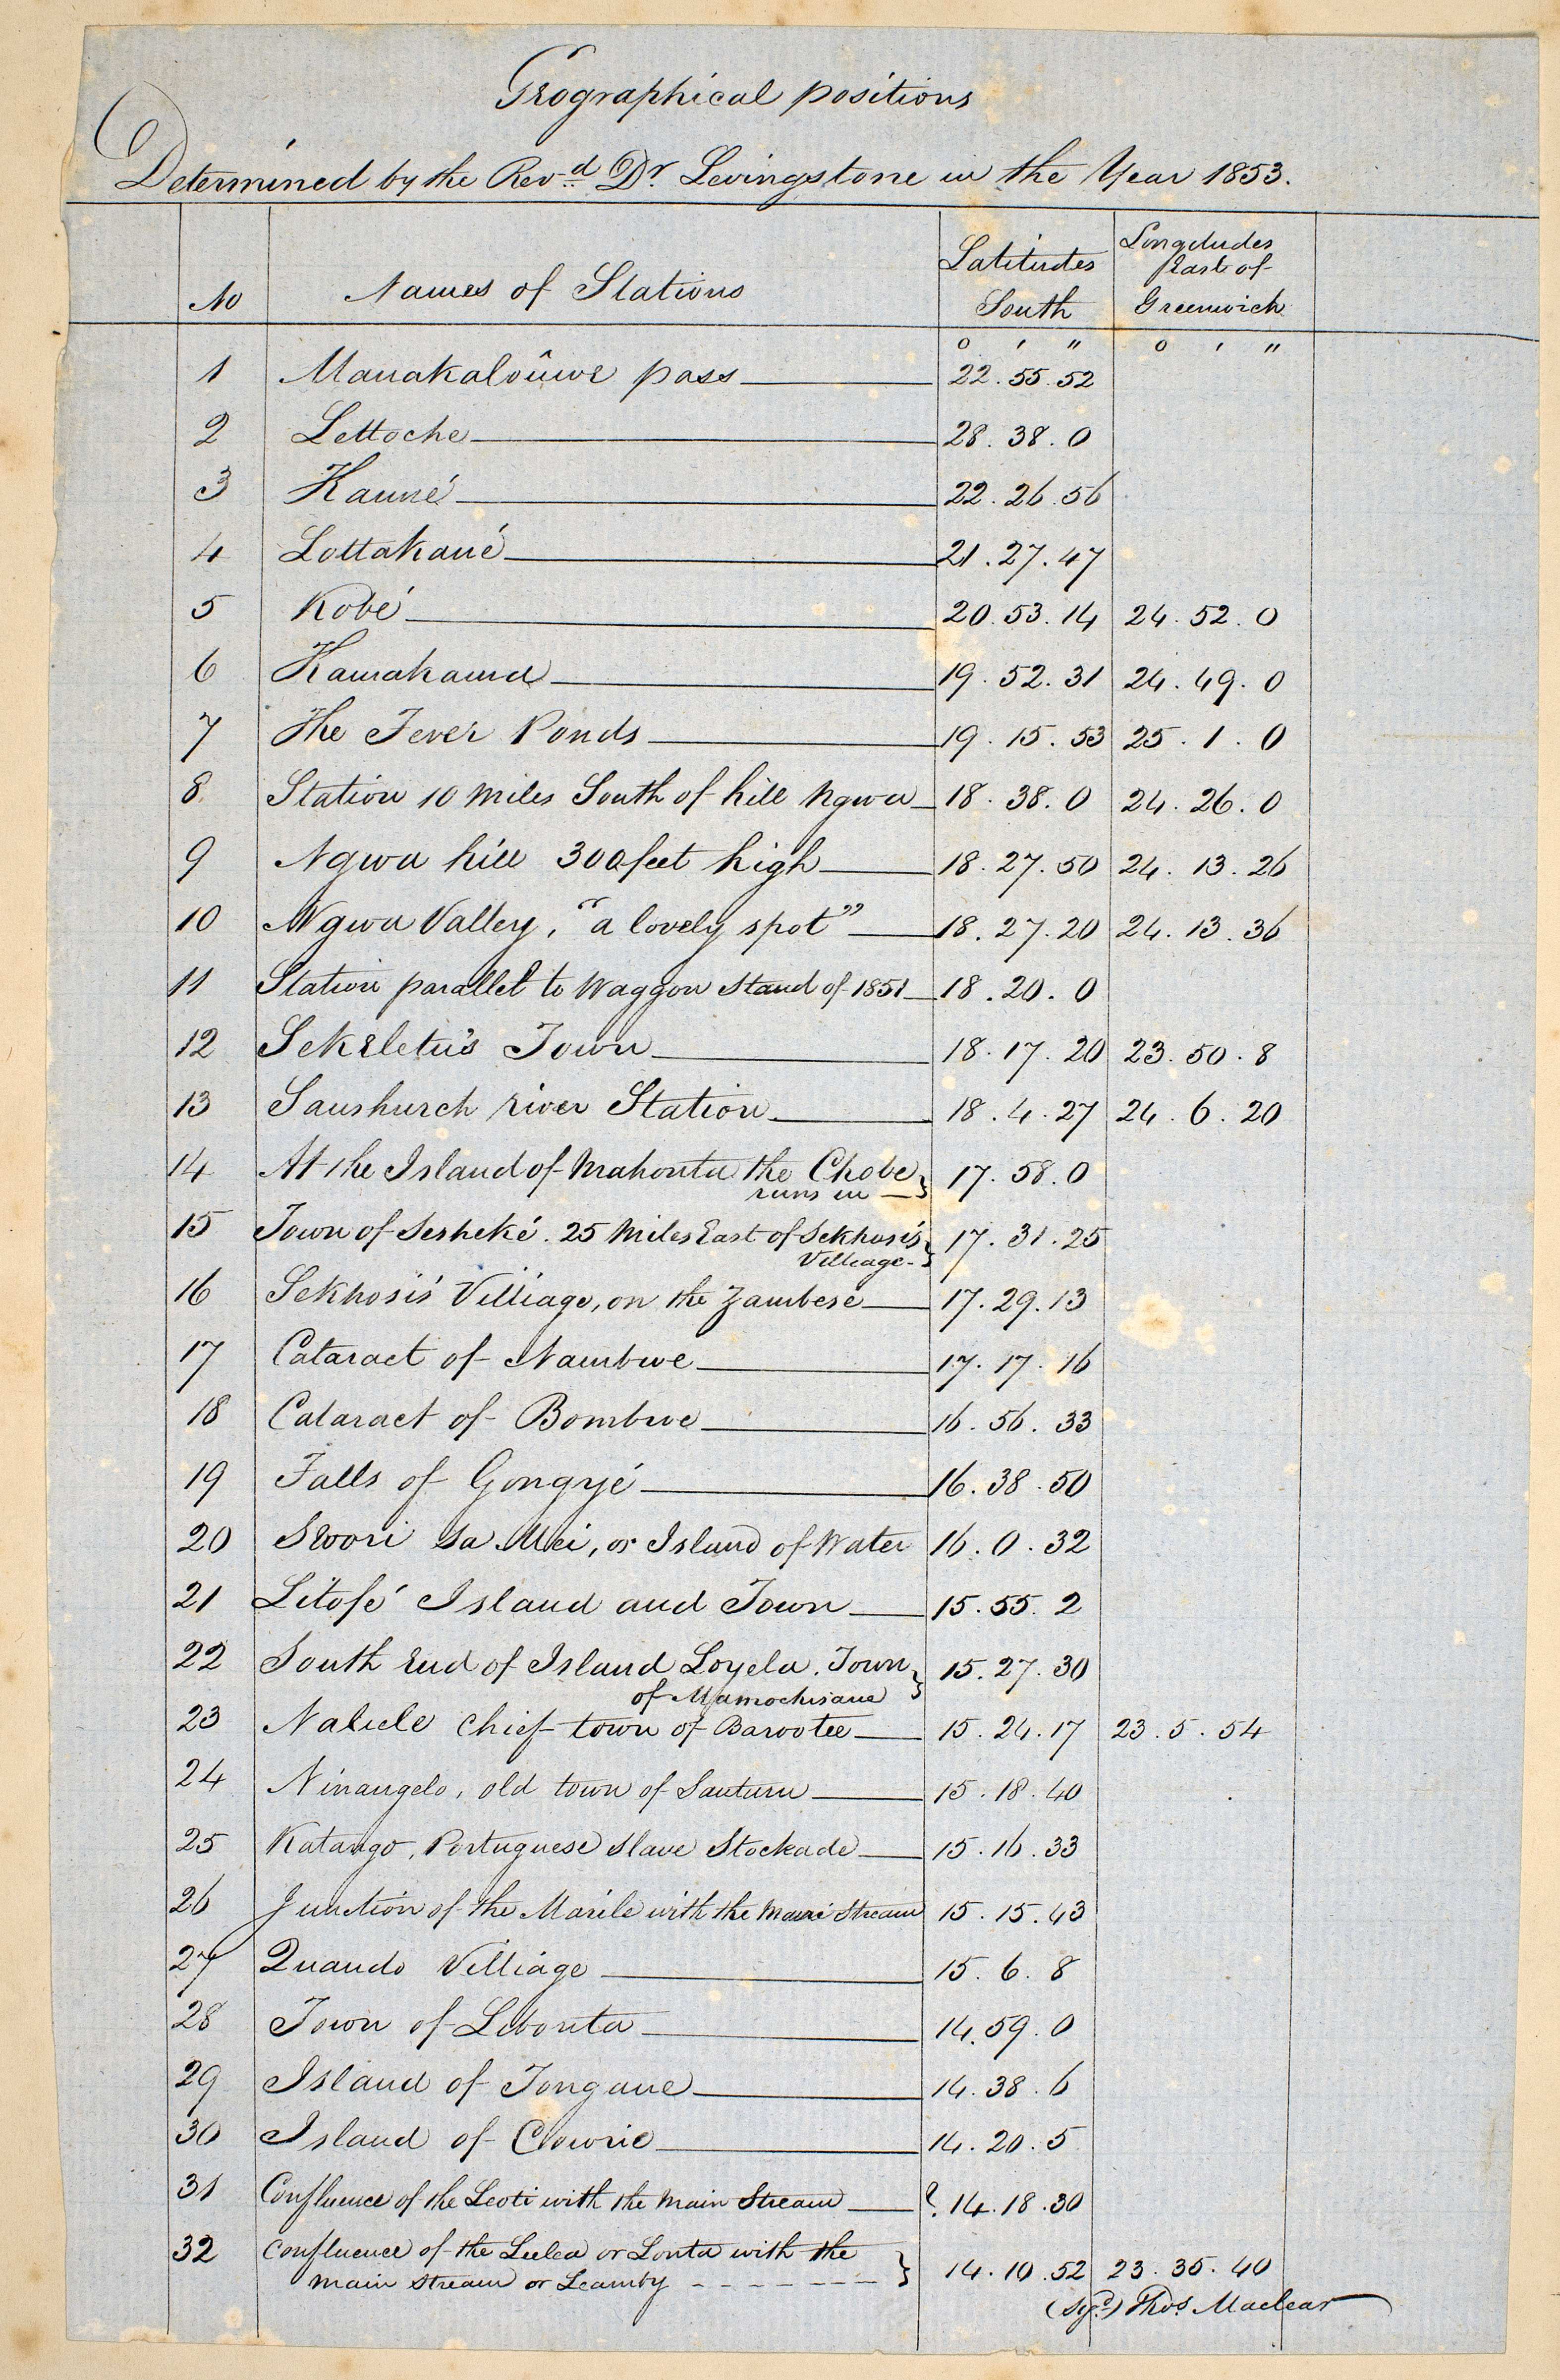 Geographical positions
Determined by the Revd. Dr. Levingstone in the Year 1853.
No Names of Stations Latitudes South Longitudes East of Greenwich
° ' " ° ' "
1 Manakalôuwe pass 22.55.52
2 Lettoche 28.38.0
3 Kanné 22.26.56
4 Lottakané 21.27.47
5 Kobé 20.53.14 24.52.0
6 Kamakama 19.52.31 24.49.0
7 The Fever Ponds 19.15.53 25.1.0
8 Station 10 Miles South of hill Ngwa 18.38.0 24.26.0
9 Ngwa hill 300 feet high 18.27.50 24.13.26
10 Ngwa Valley, "a lovely spot" 18.27.20 24.13.36
11 Station parallel to Waggon Stand of 1851 18.20.0
12 Sekeletu's Town 18.17.20 23.50.8
13 Sanshurch river Station 18.4.27 24.6.20
14 At the Island of Mahonta the Chobe } 17.58.0
runs in
15 Town of Sesheké. 25 Miles East of Sekhosi's } 17.31.25
Villiage
16 Sekhosi's Villiage, on the Zambese 17.29.13
17 Cataract of Nambwe 17.17.16
18 Cataract of Bombwe 16.56.33
19 Falls of Gongyé 16.38.50
20 Seoori sa Mei, or Island of Water 16.0.32
21 Litofé Island and Town 15.55.2
22 South End of Island Loyela. Town } 15.27.30
of Mamochisane
23 Naliele Chief town of Barootse 15.24.17 23.5.54
24 Ninangelo, old town of Santuru 15.18.40
25 Katango, Portuguese Slave Stockade 15.16.33
26 Junction of the Marile with the Main Stream 15.15.43
27 Quando Villiage 15.6.8
28 Town of Libonta 14.59.0
29 Island of Tongane 14.38.6
30 Island of Cowrie 14.20.5
31 Confluence of the Leoti with the Main Stream ? 14.18.30
32 Confluence of the Leeba or Lonta with the } 14.10.52 23.35.40
main Stream or Leamby
(sgd.) Thos. Maclear